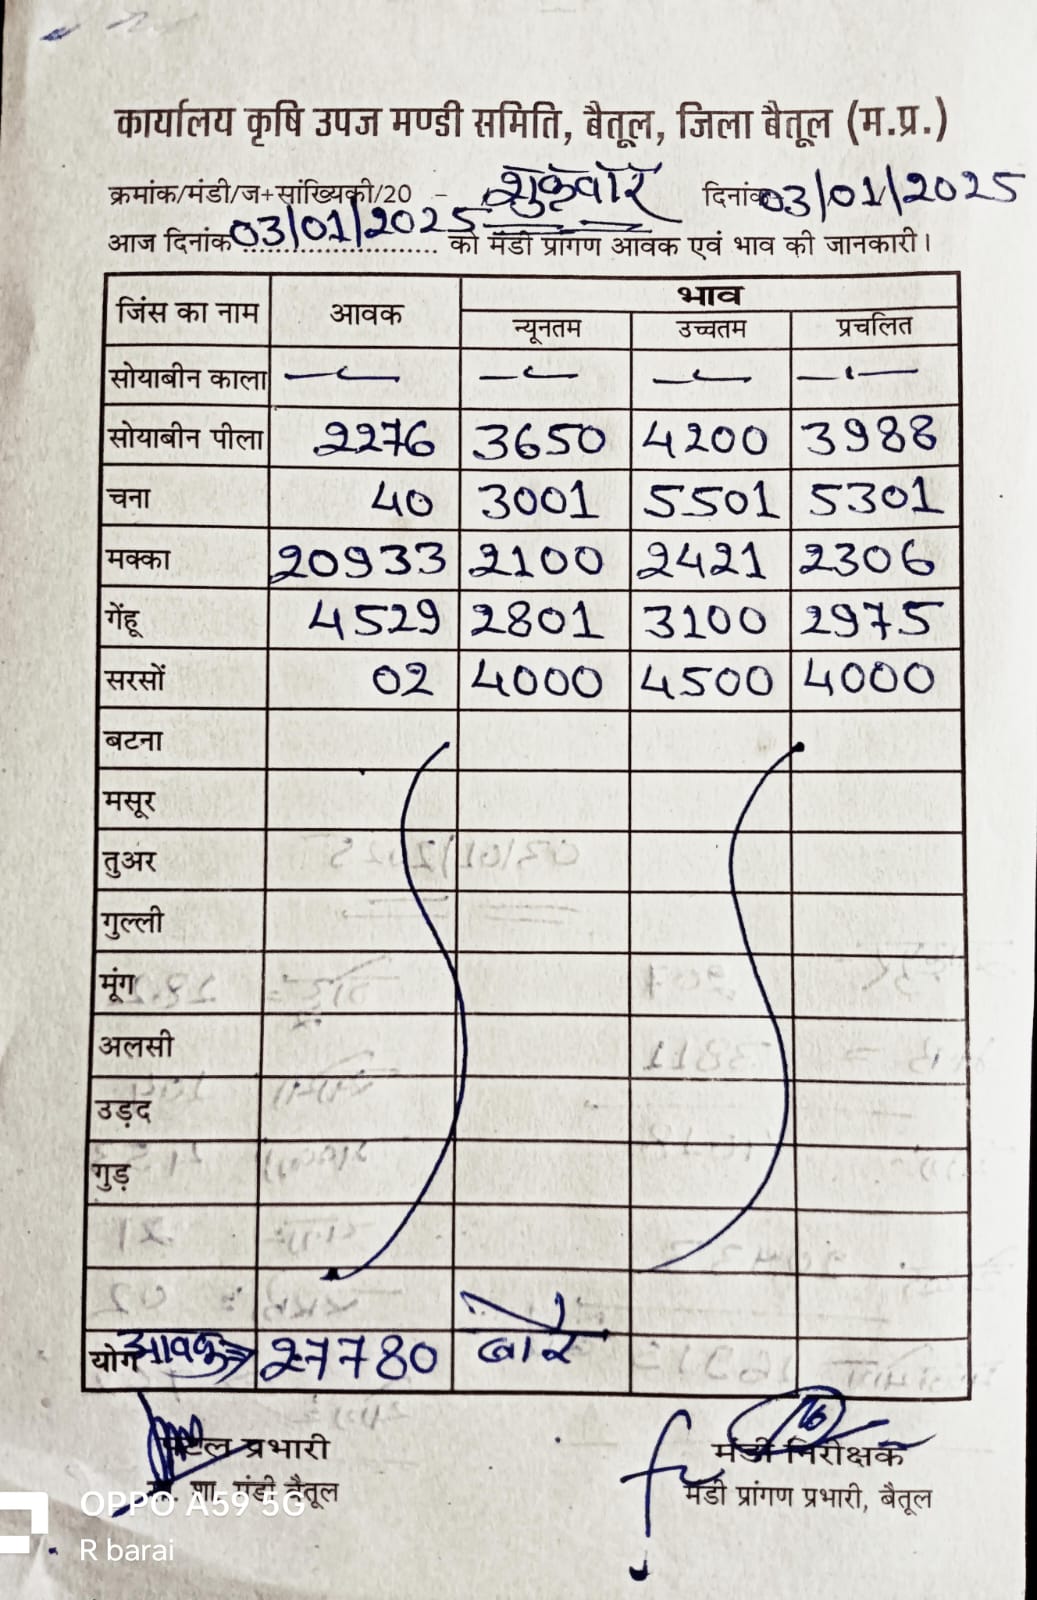 कार्यालय कृषि उपज मण्डी समिति, बैतूल, जिला बैतूल (म.प्र.)
क्रमांक/मंडी/ज+सांख्यिकी/20 - शुक्रवार दिनांक 03/01/2025
आज दिनांक 03/01/2025 को मंडी प्रांगण आवक एवं भाव की जानकारी।
जिंस का नाम आवक भाव
न्यूनतम उच्चतम प्रचलित
सोयाबीन काला — — — —
सोयाबीन पीला 2276 3650 4200 3988
चना 40 3001 5501 5301
मक्का 20933 2100 2421 2306
गेंहू 4529 2801 3100 2975
सरसों 02 4000 4500 4000
बटना
मसूर
तुअर
गुल्ली
मूंग
अलसी
उड़द
गुड़
योग आवक 27780 बोरे
प्रभारी मंडी निरीक्षक
मंडी बैतूल मंडी प्रांगण प्रभारी, बैतूल
OPPO A59 5G
R barai